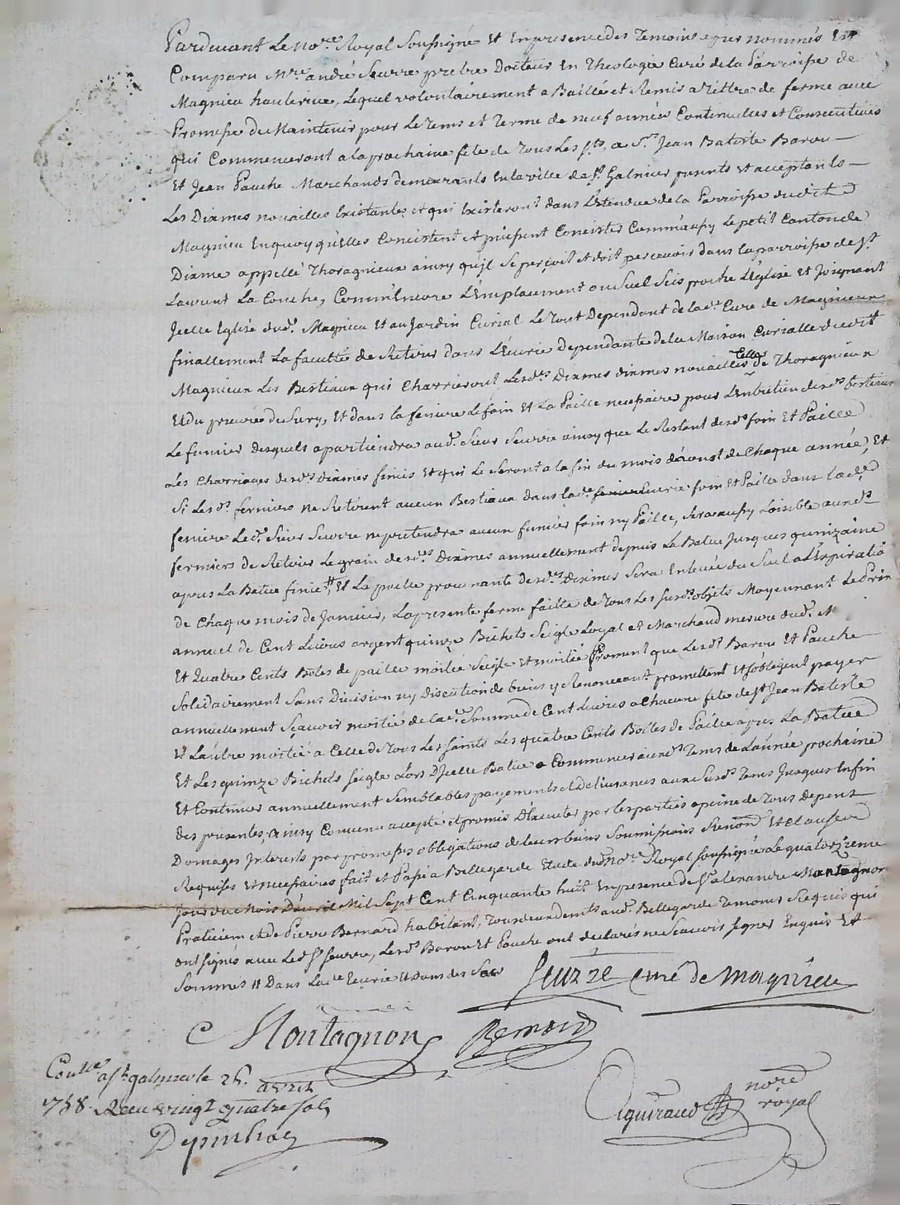 Pardevant Le No.re Royal Soussigné Et En presence des Temoins apres nommés Est
Comparu M.re andré Seurre prêtre Docteur En Theologie Curé de la Parroisse de
Magnieu hauterive, Lequel volontairement a Baillé et Remis a tittre de ferme avec
Promesse de Maintenir pour Le tems et terme de neuf années Continuelles et Consecutives
qui Commenceront a la prochaine fête de Tous Les S.ts, a S.rs Jean Batiste Barou
Et Jean Pauche Marchands demeurants En la ville de S.t Galmier presents et acceptants
Les Dixmes novailles Existantes et qui Existeront dans L'étendue de la Parroisse dudit
Magnieu En quoy qu'elles Consistent et puissent Consister Comm'aussy Le petit Canton de
Dixme appellé Thoragnieux ainsy qu'il se perçoit et doit percevoir dans la parroisse de S.t
Laurent La Conche, Comm'encore L'Emplacement ou Suel Scis proche L'Eglise et Joignant
Jcelle Eglise dud. Magnieu Et au Jardin Curial Le tout Dependant de la de. Cure de Magnieu
finallement La faculté de Retirer dans L'Ecurie Dependante de la Maison Curialle dudit
Magnieu Les Bestiaux qui Charrieront Lesd.es Dixmes novailles Celles de Thoragnieux
Et du prieuré de Sury, Et dans la feniere Le foin Et La Paille necessaire pour L'Entretien desd. bestiaux
Le fumier desquels apartiendra aud. Sieur Seurre ainsy que Le Restant desd. foin Et Paille
Les Charriages desd. dixmes finis Et qui Le Seront a la fin du mois d'aoust de Chaque année, Et
Si Lesd. fermiers ne Retirent aucun Bestiaux dans lad.e Ecurie foin Et Paille dans lad.e
feniere Led. Sieur Seurre ne pretendra aucun fumier foin ny Paille, Sera aussy Loisible auxd.
fermiers de Retirer Le grain desd.es Dixmes annuellement depuis La Batue Jusques quinzaine
apres La Batue finie, Et La paille provenante desd. Dixmes Sera Enlevée du Suel a L'Expiration
de Chaque mois de Janvier, La presente ferme faitte de Tous Les Susd. objets Moyennant Le Prix
annuel de Cent Livres argent quinze Bichets Seigle Loyal et Marchand mesure dud. et
Et Quatre Cents Botes de paille moitié Seigle et moitié froment que Lesd. Barou Et Pauche
Solidairement Sans Division ny Discution de biens y Renonceant promettent Et s'obligent payer
annuellement Scavoir moitié de lad.e Somme de Cent Livres a Chacune fête de S.t Jean Batiste
Et L'autre moitié a Celle de Tous Les Saints Les quatre Cents Bottes de Paille apres La Batue
Et Les quinze Bichets Seigle Lors d'Jcelle Batue a Commencer auxd. Tems de L'année prochaine
Et Continuer annuellement Semblables payements et delivrances aux Susd. Tems Jusques En fin
des presentes, ainsy Convenu accepté et promis d'Executer par les parties a peine de Tous depens
Domages Interets par promesses obligations de leurs biens Soumissions Renon.on Et Clauses
Requises et necessaires fait et Passé a Bellegarde Etude du no.re Royal Soussigné Le quatorzieme
Jour du Mois D'avril Mil Sept Cent Cinquante huit En presence de S.r alexandre Montagnon
Praticien et de Pierre Bernard habitant, Tous deux demts aud. Bellegarde Temoins Requis qui
ont signés avec Led. S.r Seurre, Lesd. Barou Et Pauche ont declarés ne Scavoir signer Enquis Et
Sommés
Seurre Curé de Magnieu
Montagnon
Bernard
Con.lle a S.t galmier le 25. avril
1758. Reçu vingt quatre sols
Depinhac
Aguiraud no.re royal